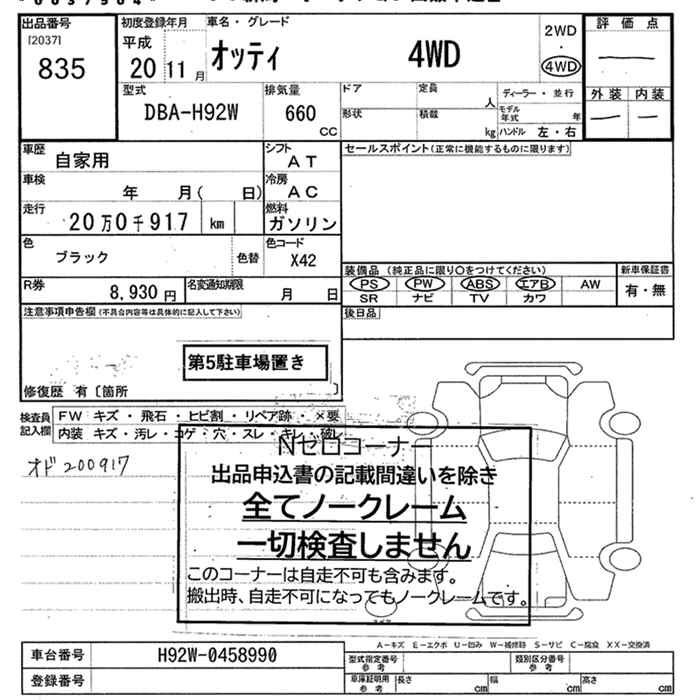 出品番号 初度登録年月 車名・グレード 2WD 評価点
[2037] 平成 オッティ 4WD ・
835 20 11月 4WD
型式 排気量 ドア 定員 ディーラー・並行 外装 内装
DBA-H92W 660 CC 人 モデル年式 年
形状 積載 kg ハンドル 左・右
車歴 自家用 シフト AT セールスポイント(正常に機能するものに限ります)
車検 年 月( 日) 冷房 AC
走行 20万0千917 km 燃料 ガソリン
色 ブラック 色替 色コード X42
装備品(純正品に限り○をつけてください) 新車保証書
R券 8,930円 名変通知期限 月 日 PS PW ABS エアB AW 有・無
SR ナビ TV カワ
注意事項申告欄(不具合内容等は具体的に記入して下さい) 後日品
第5駐車場置き
修復歴 有〔箇所 〕
検査員記入欄 FW キズ・飛石・ヒビ割・リペア跡・×要
内装 キズ・汚レ・コゲ・穴・スレ・キレ・破レ
オド200917
Nゼロコーナー
出品申込書の記載間違いを除き
全てノークレーム
一切検査しません
このコーナーは自走不可も含みます。
搬出時、自走不可になってもノークレームです。
スペア
A-キズ E-エクボ U-凹み W-補修跡 S-サビ C-腐食 XX-交換済
車台番号 H92W-0458990 型式指定番号 参考 類別区分番号 参考
登録番号 車庫証明用 参考 長さ cm 幅 cm 高さ cm